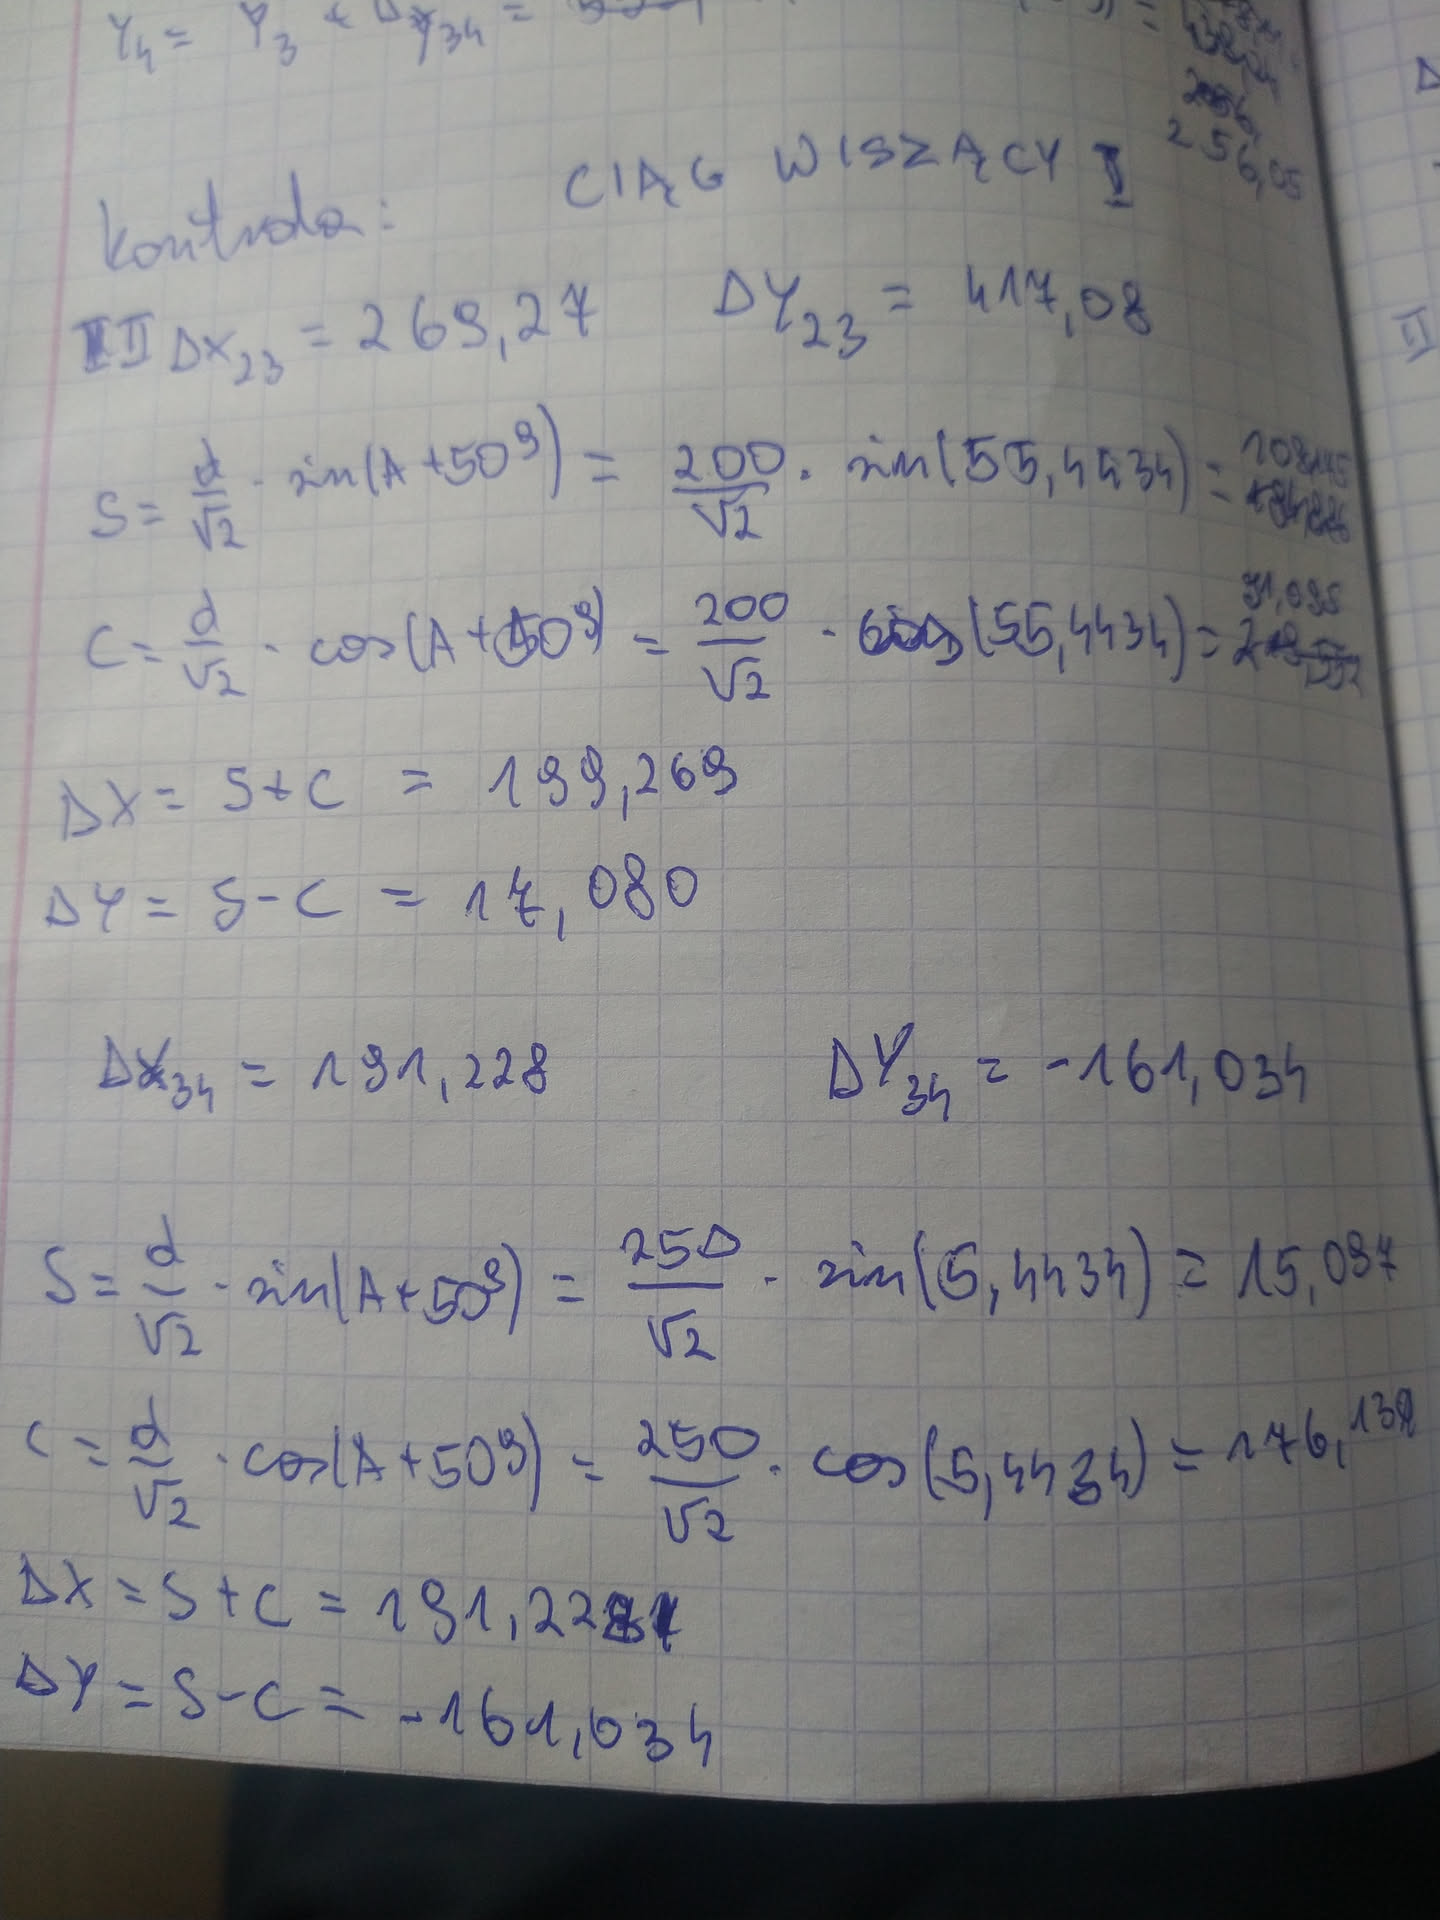 Y₄ = Y₃ + ΔY₃₄ =
256,05
CIĄG WISZĄCY I
Kontrola:
II ΔX₂₃ = 269,27 ΔY₂₃ = 417,08
S = d/√2 · sin(A+50ᵍ) = 200/√2 · sin(55,4434) = 108,175
C = d/√2 · cos(A+50ᵍ) = 200/√2 · cos(55,4434) = 91,095
ΔX = S+C = 199,269
ΔY = S-C = 17,080
ΔX₃₄ = 191,228 ΔY₃₄ = -161,034
S = d/√2 · sin(A+50ᵍ) = 250/√2 · sin(5,4434) = 15,097
C = d/√2 · cos(A+50ᵍ) = 250/√2 · cos(5,4434) = 176,132
ΔX = S+C = 191,22
ΔY = S-C = -161,034
II